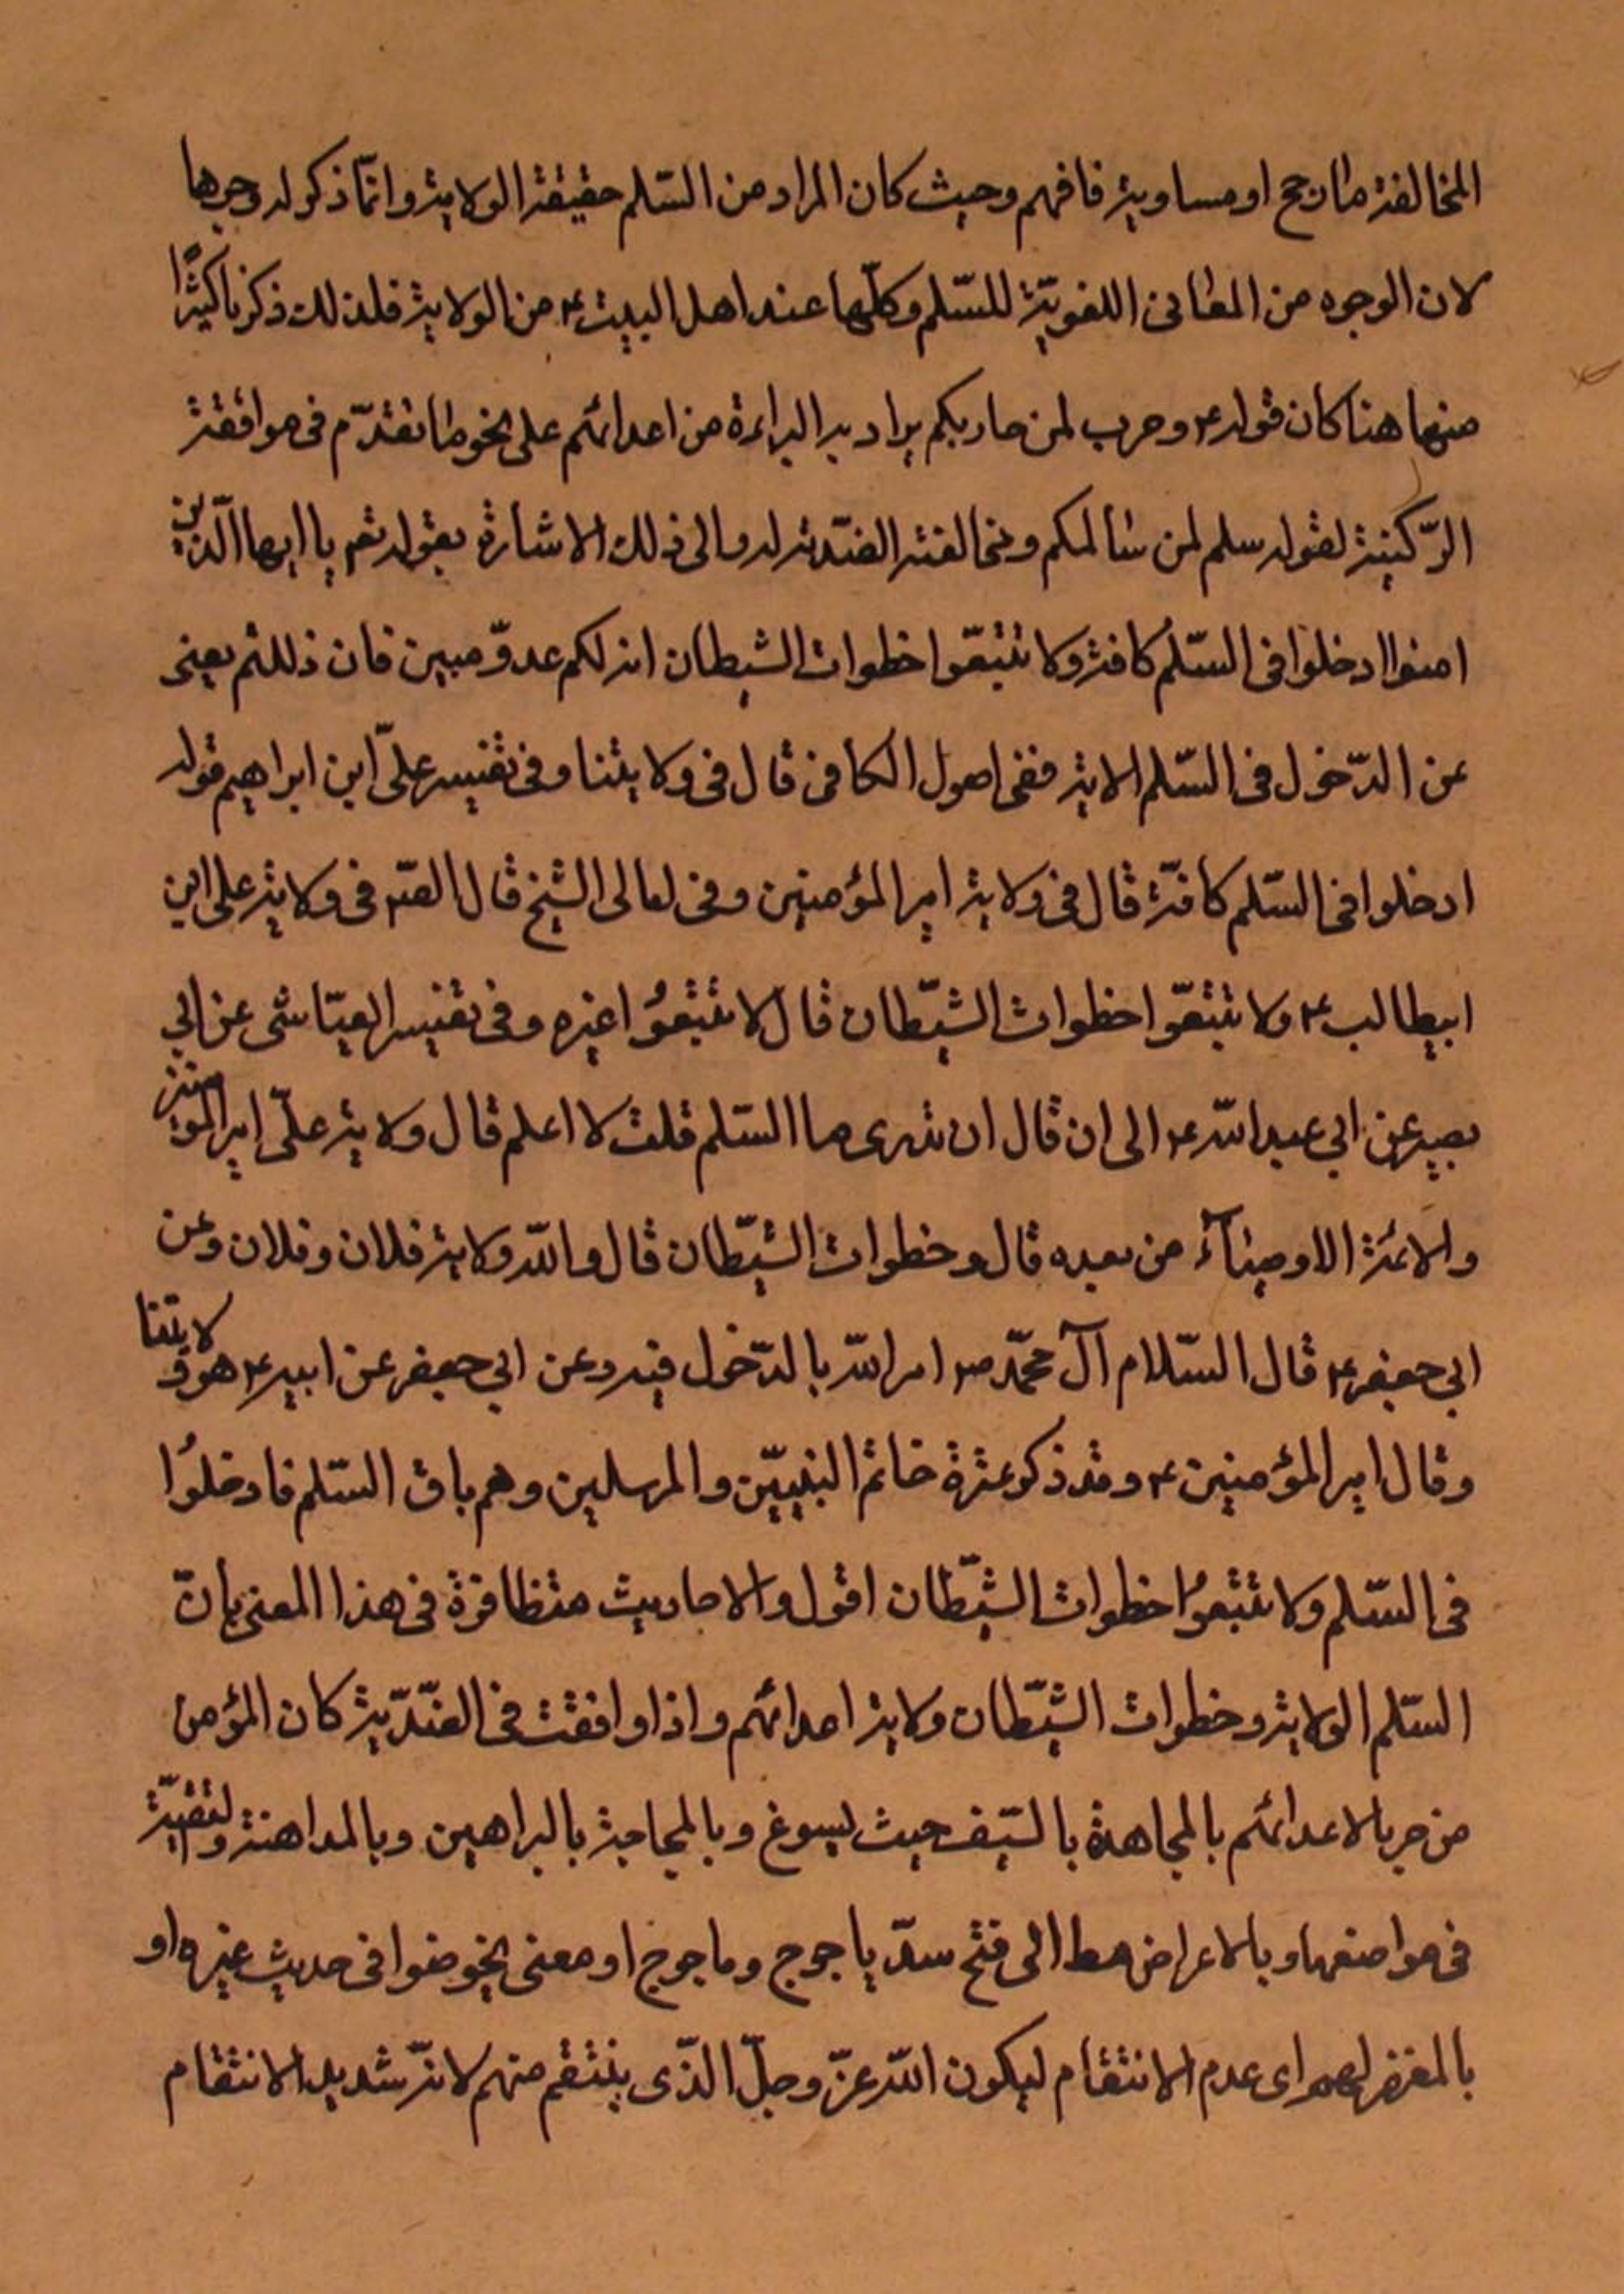 المخالفة ما ارجح او مساوية فافهم وحيث كان المراد من السّلم حقيقة الولاية وانّما ذكر له وجوها
لان الوجوه من المعانى اللغويّة للسّلم وكلّها عند اهل البيت ع من الولاية فلذلك ذكرنا كثيرًا
منها هنا كان قوله ع وحرب لمن حاربكم يراد به البراءة من اعدائهم على نحو ما تقدّم فى موافقة
الرّكنية لقوله سلم لمن سالمكم ومخالفته الضّدية له والى ذلك الاشارة بقوله تعم يا ايها الّذين
امنوا ادخلوا فى السّلم كافة ولا تتبعّوا خطوات الشيطان انه لكم عدوّ مبين فان ذللتم يعنى
عن الدّخول فى السّلم الاية ففى اصول الكافى قال فى ولايتنا وفى تفسير علىّ ابن ابراهيم قوله
ادخلوا فى السّلم كافّة قال فى ولاية امير المؤمنين وفى امالى الشيخ قال الصّ فى ولاية على ابن
ابيطالب ع ولا تتبعّوا خطوات الشيّطان قال لا تتبعُوا غيره وفى تفسير العيّاشى عن ابي
بصير عن ابي عبد اللّه ع الى ان قال ان تدرى ما السّلم قلت لا اعلم قال ولاية علىّ امير المؤمنين
والائمّة الاوصيآء من بعده قال وخطوات الشيّطان قال واللّه ولاية فلان وفلان وعن
ابي جعفر ع قال السّلام آل محمّد ص امر اللّه بالدّخول فيه وعن ابي جعفر عن ابيه ع هو ولايتنا
وقال امير المؤمنين ع وقد ذكر عترة خاتم النبيّين والمرسلين وهم باب السّلم فادخلوُا
فى السّلم ولا تتبعوُا خطوات الشيّطان اقول والاحاديث متظافرة فى هذا المعنى بأنّ
السّلم الولاية وخطوات الشيّطان ولاية اعدائهم واذا وافقت فى الضّدّية كان المؤمن
من حربا لاعدائهم بالمجاهدة بالسّيف حيث يسوغ وبالمحاجة بالبراهين وبالمداهنة والتقيّة
فى مواضعها وبالاعراض مط الى فتح سدّ ياجوج وماجوج او معنى يخوضوا فى حديث غيره او
بالمغفر لهم اى عدم الانتقام ليكون اللّه عزّ وجلّ الذّى ينتقم منهم لانّه شديد الانتقام